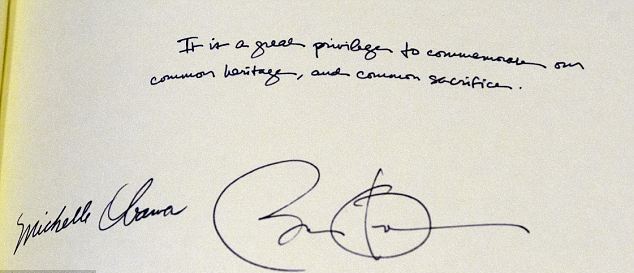 It is a great privilege to commemorate our
common heritage, and common sacrifice.
Michelle Obama